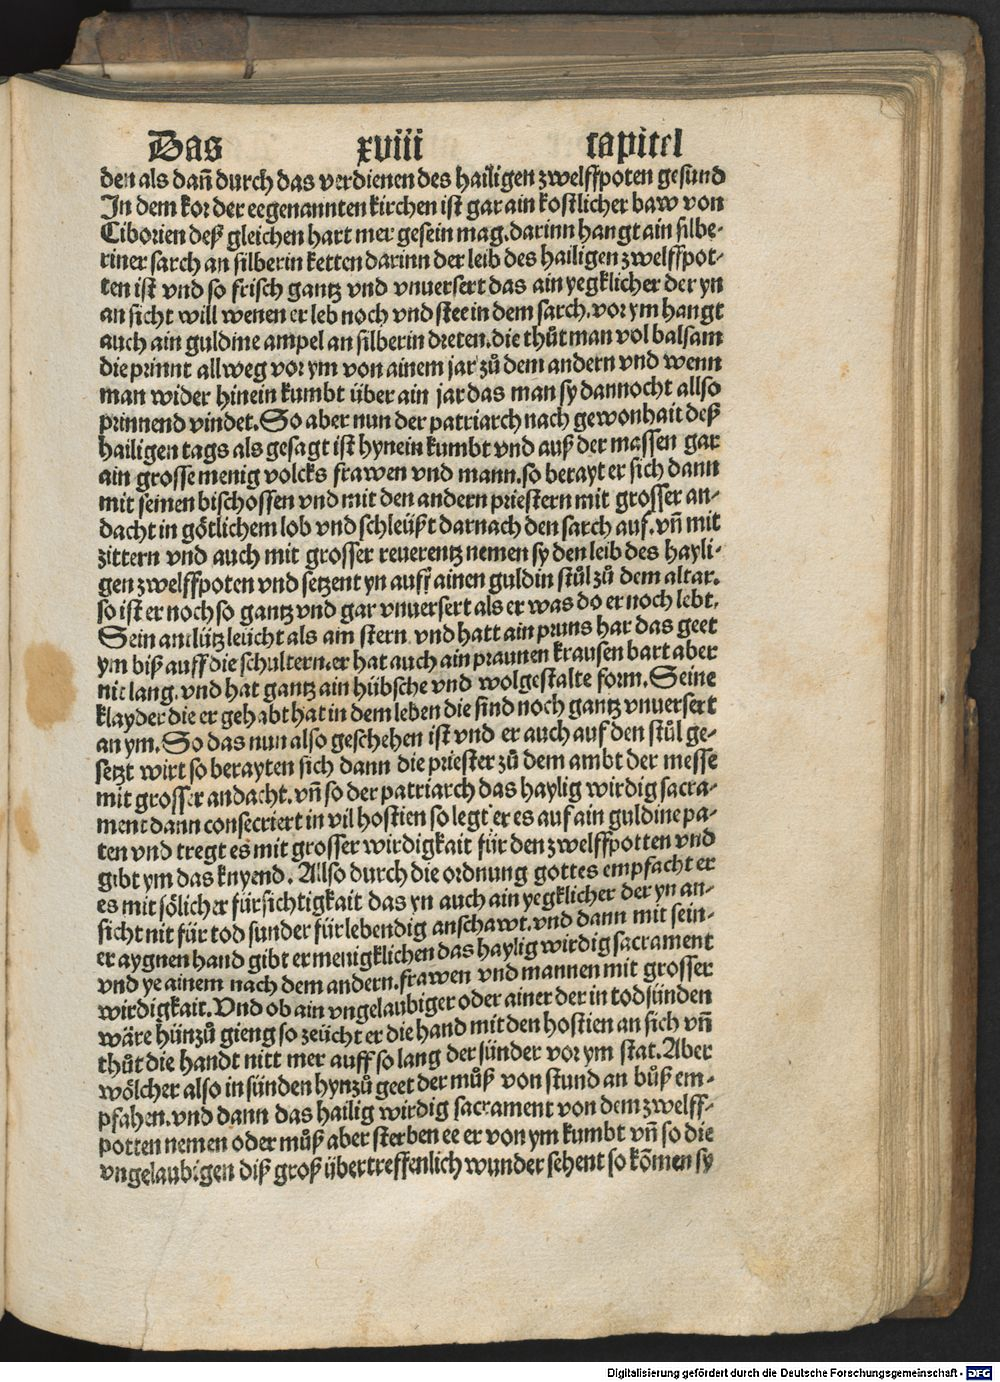 Das xviii capitel
den als dañ durch das verdienen des hailigen zwelffpoten gesund
In dem kor der eegenannten kirchen ist gar ain kostlicher baw von
Ciborien deß gleichen hart mer gesein mag. darinn hangt ain silbe-
riner sarch an silberin ketten darinn der leib des hailigen zwelffpot-
ten ist vnd so frisch gantz vnd vnuersert das ain yegklicher der yn
an sicht will wenen er leb noch vnd stee in dem sarch. vor ym hangt
auch ain guldine ampel an silberin dreten. die thůt man vol balsam
die prinnt allweg vor ym von ainem jar zů dem andern vnd wenn
man wider hinein kumbt über ain jar das man sy dannocht allso
prinnend vindet. So aber nun der patriarch nach gewonhait deß
hailigen tags als gesagt ist hynein kumbt vnd auß der massen gar
ain grosse menig volcks frawen vnd mann. so berayt er sich dann
mit seinen bischoffen vnd mit den andern priestern mit grosser an-
dacht in götlichem lob vnd schleüßt darnach den sarch auf. vñ mit
zittern vnd auch mit grosser reuerentz nemen sy den leib des hayli-
gen zwelffpoten vnd setzent yn auff ainen guldin stůl zů dem altar.
so ist er noch so gantz vnd gar vnuersert als er was do er noch lebt.
Sein antlütz leücht als ain stern vnd hatt ain pruns har das geet
ym biß auff die schultern. er hat auch ain praunen krausen bart aber
nit lang. vnd hat gantz ain hübsche vnd wolgestalte form. Seine
klayder die er gehabt hat in dem leben die sind noch gantz vnuersert
an ym. So das nun also geschehen ist vnd er auch auf den stůl ge-
setzt wirt so berayten sich dann die priester zů dem ambt der messe
mit grosser andacht. vñ so der patriarch das haylig wirdig sacra-
ment dann consecriert in vil hostien so legt er es auf ain guldine pa-
ten vnd tregt es mit grosser wirdigkait für den zwelffpotten vnd
gibt ym das knyend. Allso durch die ordnung gottes empfacht er
es mit sölicher fürsichtigkait das yn auch ain yegklicher der yn an-
sicht nit für tod sunder für lebendig anschawt. vnd dann mit sein-
er aygnen hand gibt er menigklichen das haylig wirdig sacrament
vnd ye ainem nach dem andern. frawen vnd mannen mit grosser
wirdigkait. Vnd ob ain vngelaubiger oder ainer der in todsünden
wäre hünzů gieng so zeücht er die hand mit den hostien an sich vñ
thůt die handt nitt mer auff so lang der sünder vor ym stat. Aber
wölcher also in sünden hynzů geet der můß von stund an bůß em-
pfahen. vnd dann das hailig wirdig sacrament von dem zwelff-
potten nemen oder můß aber sterben ee er von ym kumbt vñ so die
vngelaubigen diß groß übertreffenlich wunder sehent so kõmen sy
Digitalisierung gefördert durch die Deutsche Forschungsgemeinschaft - DFG